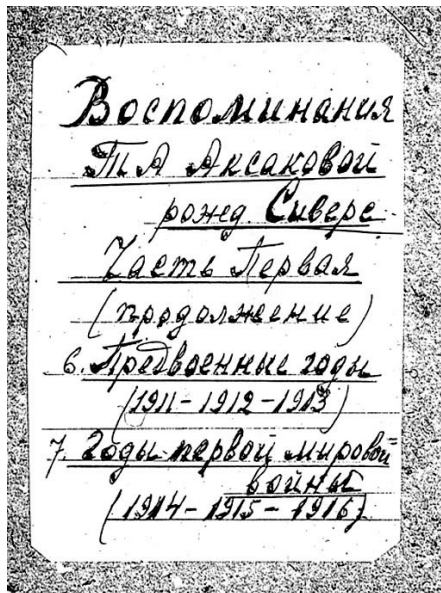 Воспоминания
Т А Аксаковой
рожд. Сиверс.
Часть Первая
(продолжение)
6. Предвоенные годы
(1911-1912-1913)
7. Годы первой мировой
войны
(1914-1915-1916)